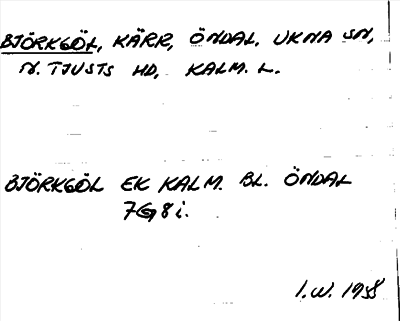 BJÖRKGÖL, KÄRR, ÖNDAL. UKNA SN,
N. TJUSTS HD, KALM. L.
BJÖRKGÖL EK KALM. BL. ÖNDAL
7G8i.
I.W. 1958